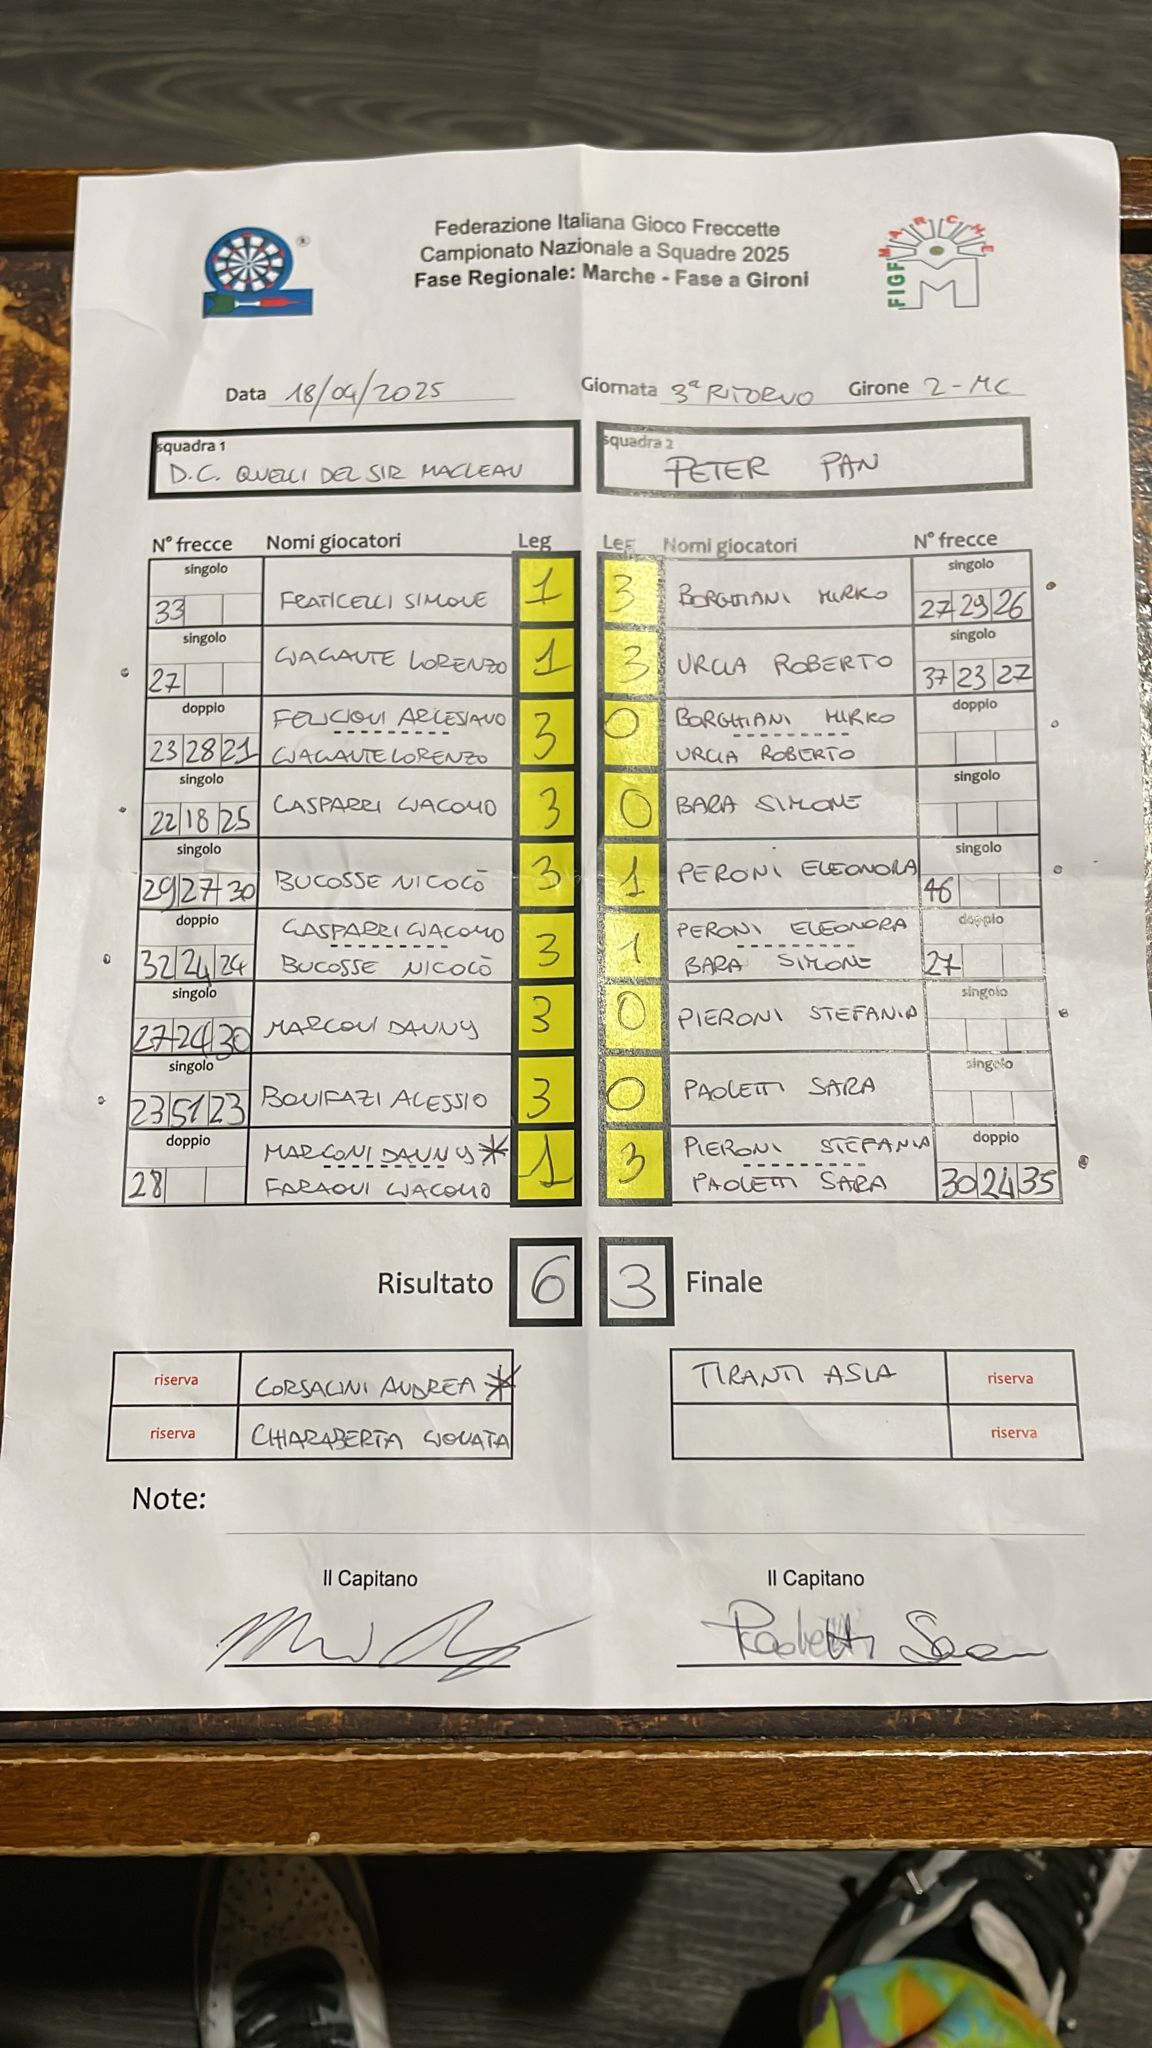 Federazione Italiana Gioco Freccette
Campionato Nazionale a Squadre 2025
Fase Regionale: Marche - Fase a Gironi
®
MARCHE
FIGF
M
Data 18/04/2025 Giornata 3ª RITORNO Girone 2-MC
squadra 1
D.C. QUELLI DEL SIR MACLEAN
squadra 2
PETER PAN
N° frecce Nomi giocatori Leg Leg Nomi giocatori N° frecce
singolo singolo
33 FRATICELLI SIMONE 1 3 BORGHIANI MIRKO 27 29 26
singolo singolo
27 GIAGANTE LORENZO 1 3 URCIA ROBERTO 37 23 27
doppio FELICIONI ARLESIANO 3 0 BORGHIANI MIRKO doppio
23 28 21 GIAGANTE LORENZO URCIA ROBERTO
singolo singolo
22 18 25 GASPARRI GIACOMO 3 0 BARA SIMONE
singolo singolo
29 27 30 BUCOSSE NICOLÒ 3 1 PERONI ELEONORA 46
doppio GASPARRI GIACOMO 3 1 PERONI ELEONORA doppio
32 24 24 BUCOSSE NICOLÒ BARA SIMONE 27
singolo singolo
27 24 30 MARCONI DANNY 3 0 PIERONI STEFANIA
singolo singolo
23 51 23 BONIFAZI ALESSIO 3 0 PAOLETTI SARA
doppio MARCONI DANNY * 1 3 PIERONI STEFANIA doppio
28 FARAONI GIACOMO PAOLETTI SARA 30 24 35
Risultato 6 3 Finale
riserva CORSALINI ANDREA * TIRANTI ASIA riserva
riserva CHIARABERTA GIONATA riserva
Note:
Il Capitano Il Capitano
Paoletti Sara